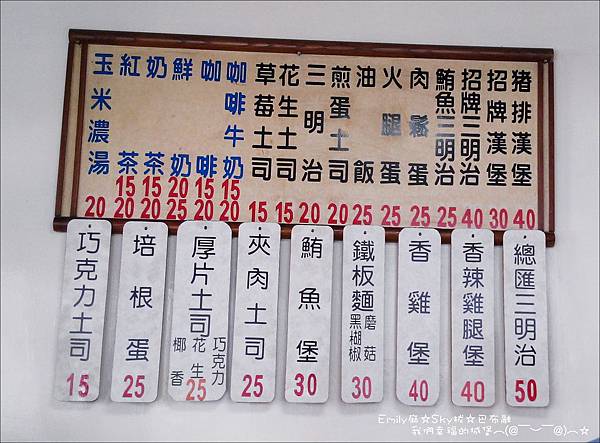 豬排漢堡 40
招牌漢堡 30
招牌三明治 40
鮪魚三明治 25
肉鬆蛋 25
火腿蛋 25
油飯 25
煎蛋土司 20
三明治 20
花生土司 15
草莓土司 15
咖啡牛奶 15 20
咖啡 15 20
鮮奶 20 25
奶茶 15 20
紅茶 15 20
玉米濃湯 20
巧克力土司 15
培根蛋 25
厚片土司 巧克力 花生 椰香 25
夾肉土司 25
鮪魚堡 30
鐵板麵 蘑菇 黑椒 30
香雞堡 40
香辣雞腿堡 40
總匯三明治 50
Emily麻☆Sky拔☆巴布融
我們幸福的城堡